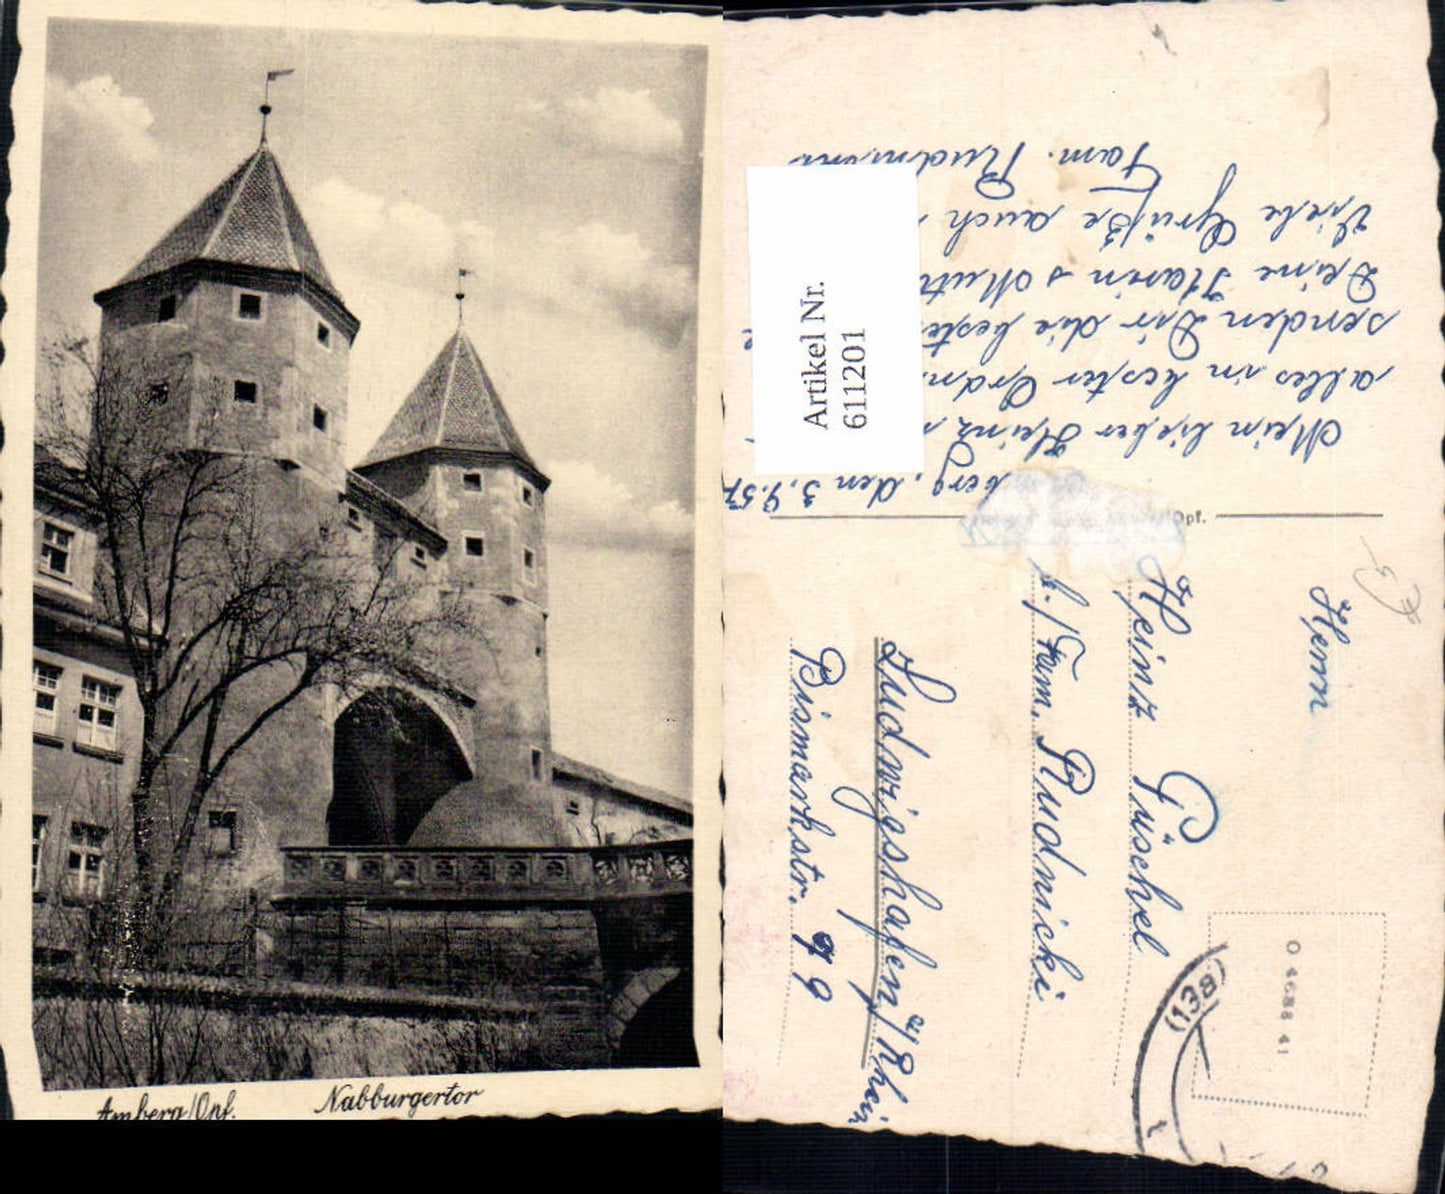 Amberg/Opf. Nabburgertor
Artikel Nr.
611201
berg, den 3.9.57
Mein lieber Heinz
alles in bester Ordn
senden Dir die beste
Deine Karin + Mutt
Viele Grüße auch
Fam. Rudn
Opf.
Herrn
Heinz Güschel
b./Fam. Rudnicki
Ludwigshafen a/Rhein
Bismarkstr. 99
O 4688 41
(13a)